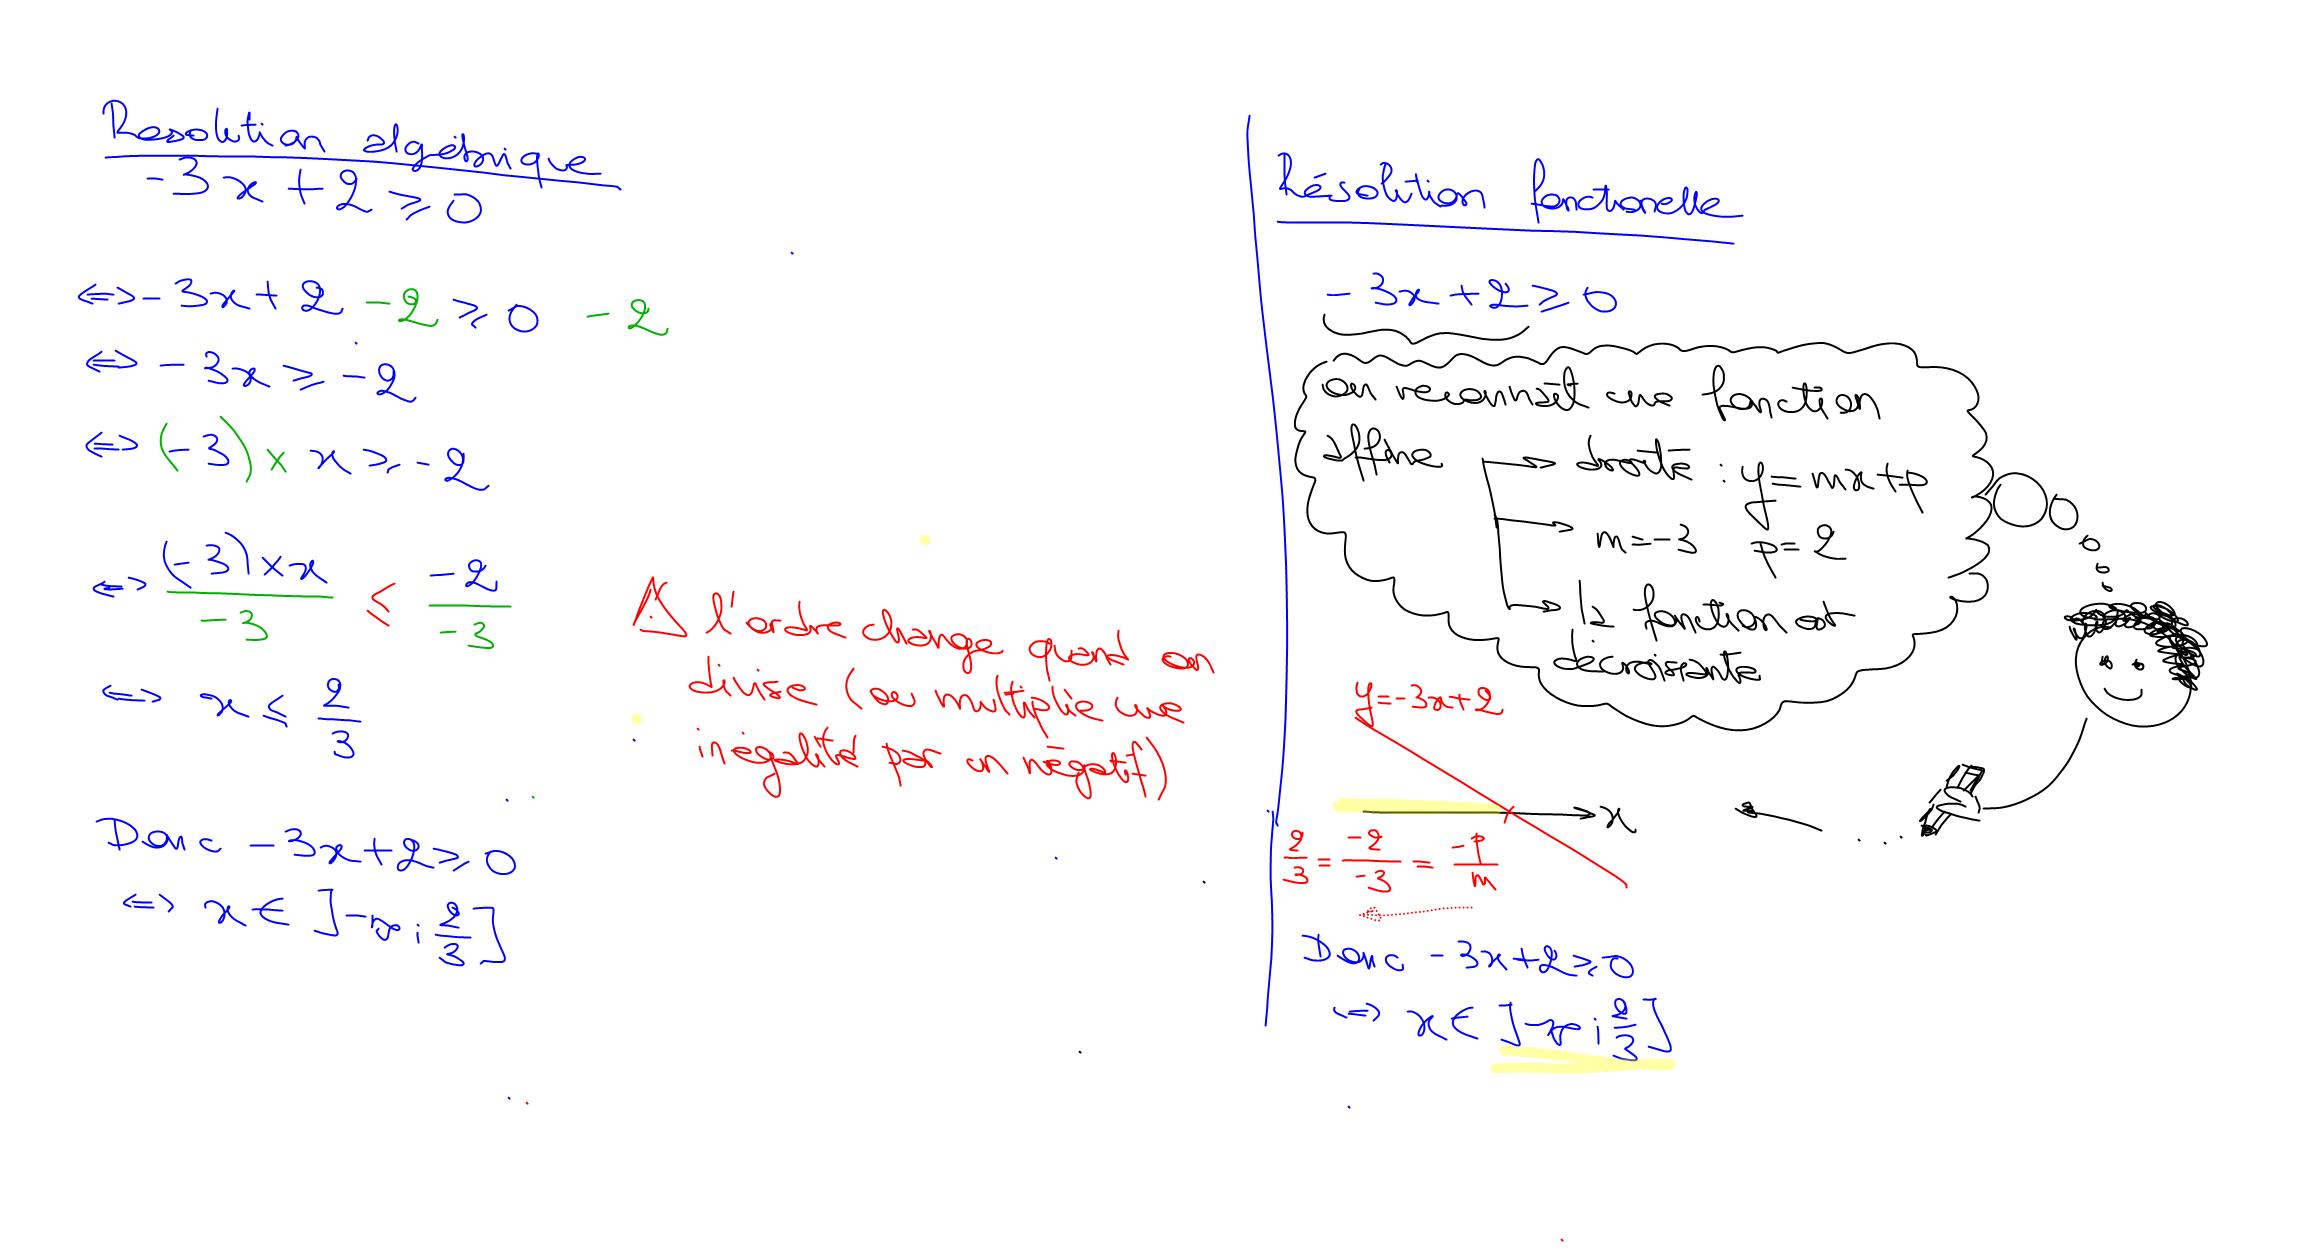 Resolution algébrique
-3x + 2 ⩾ 0
⇔ - 3x + 2 - 2 ⩾ 0 - 2
⇔ - 3x ⩾ - 2
⇔ (-3) × x ⩾ - 2
⇔ (-3) × x / -3 ⩽ -2 / -3
⇔ x ⩽ 2/3
Donc -3x+2 ⩾ 0
⇔ x ∈ ]-∞ ; 2/3]
⚠ l'ordre change quand on
divise (ou multiplie une
inégalité par un négatif)
Résolution fonctionelle
- 3x + 2 ⩾ 0
on reconnaît une fonction
affine → droite : y = mx + p
→ m = -3 p = 2
→ la fonction est
décroissante
y = -3x + 2
x
2/3 = -2/-3 = -p/m
Donc -3x+2 ⩾ 0
⇔ x ∈ ]-∞ ; 2/3]